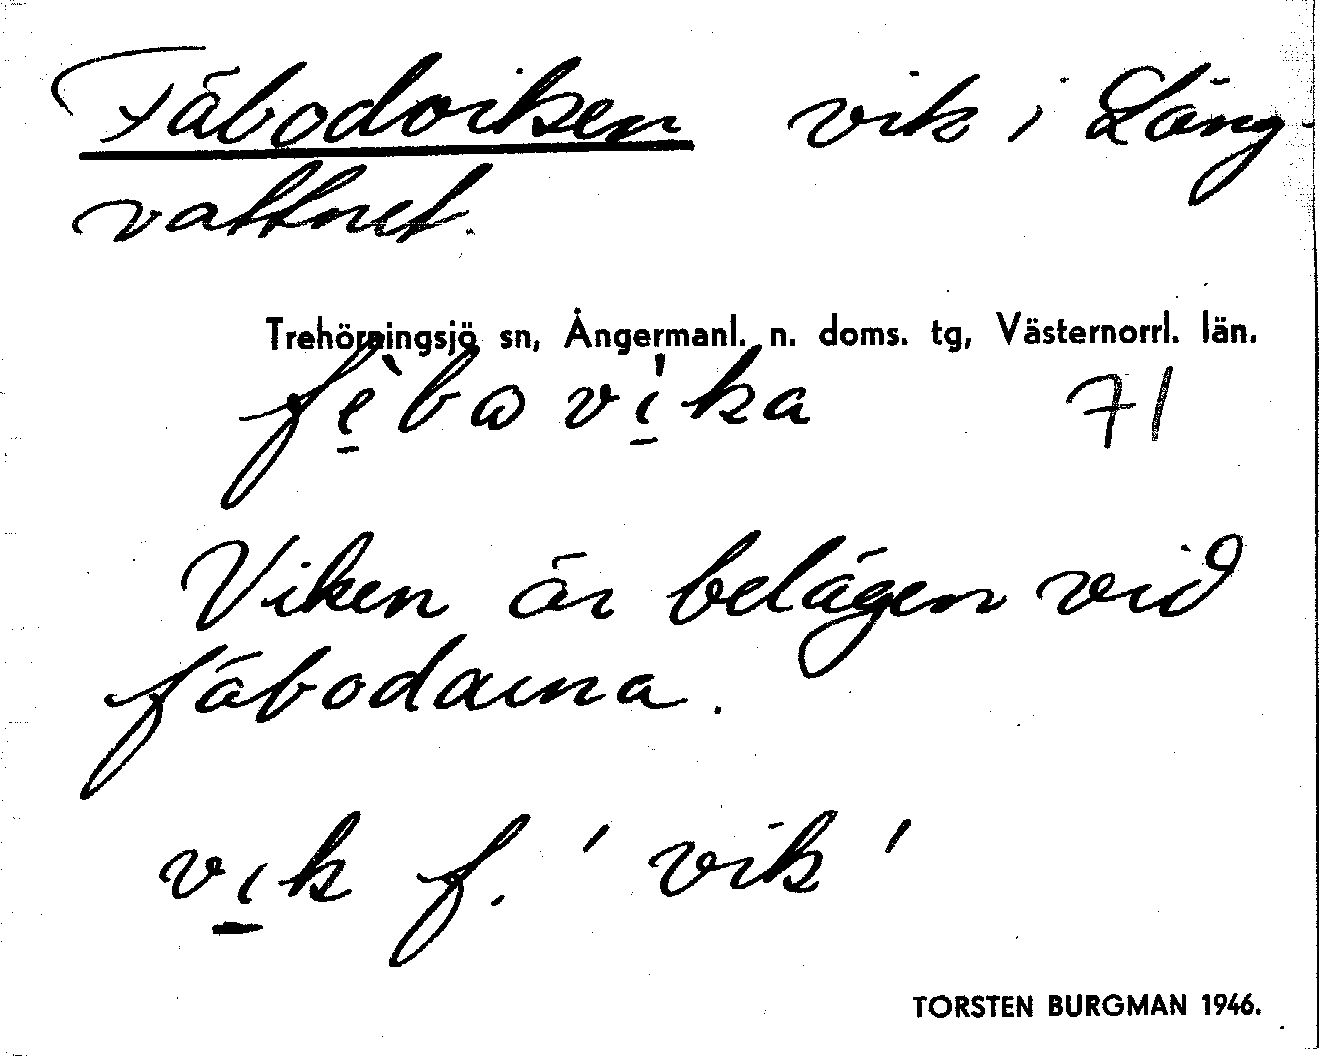 Fäbodviken vik i Lång-
vattnet.
Trehörningsjö sn, Ångermanl. n. doms. tg, Västernorrl. län.
fèbωvíka 71
Viken är belägen vid
fäbodarna.
vık f. 'vik'
TORSTEN BURGMAN 1946.